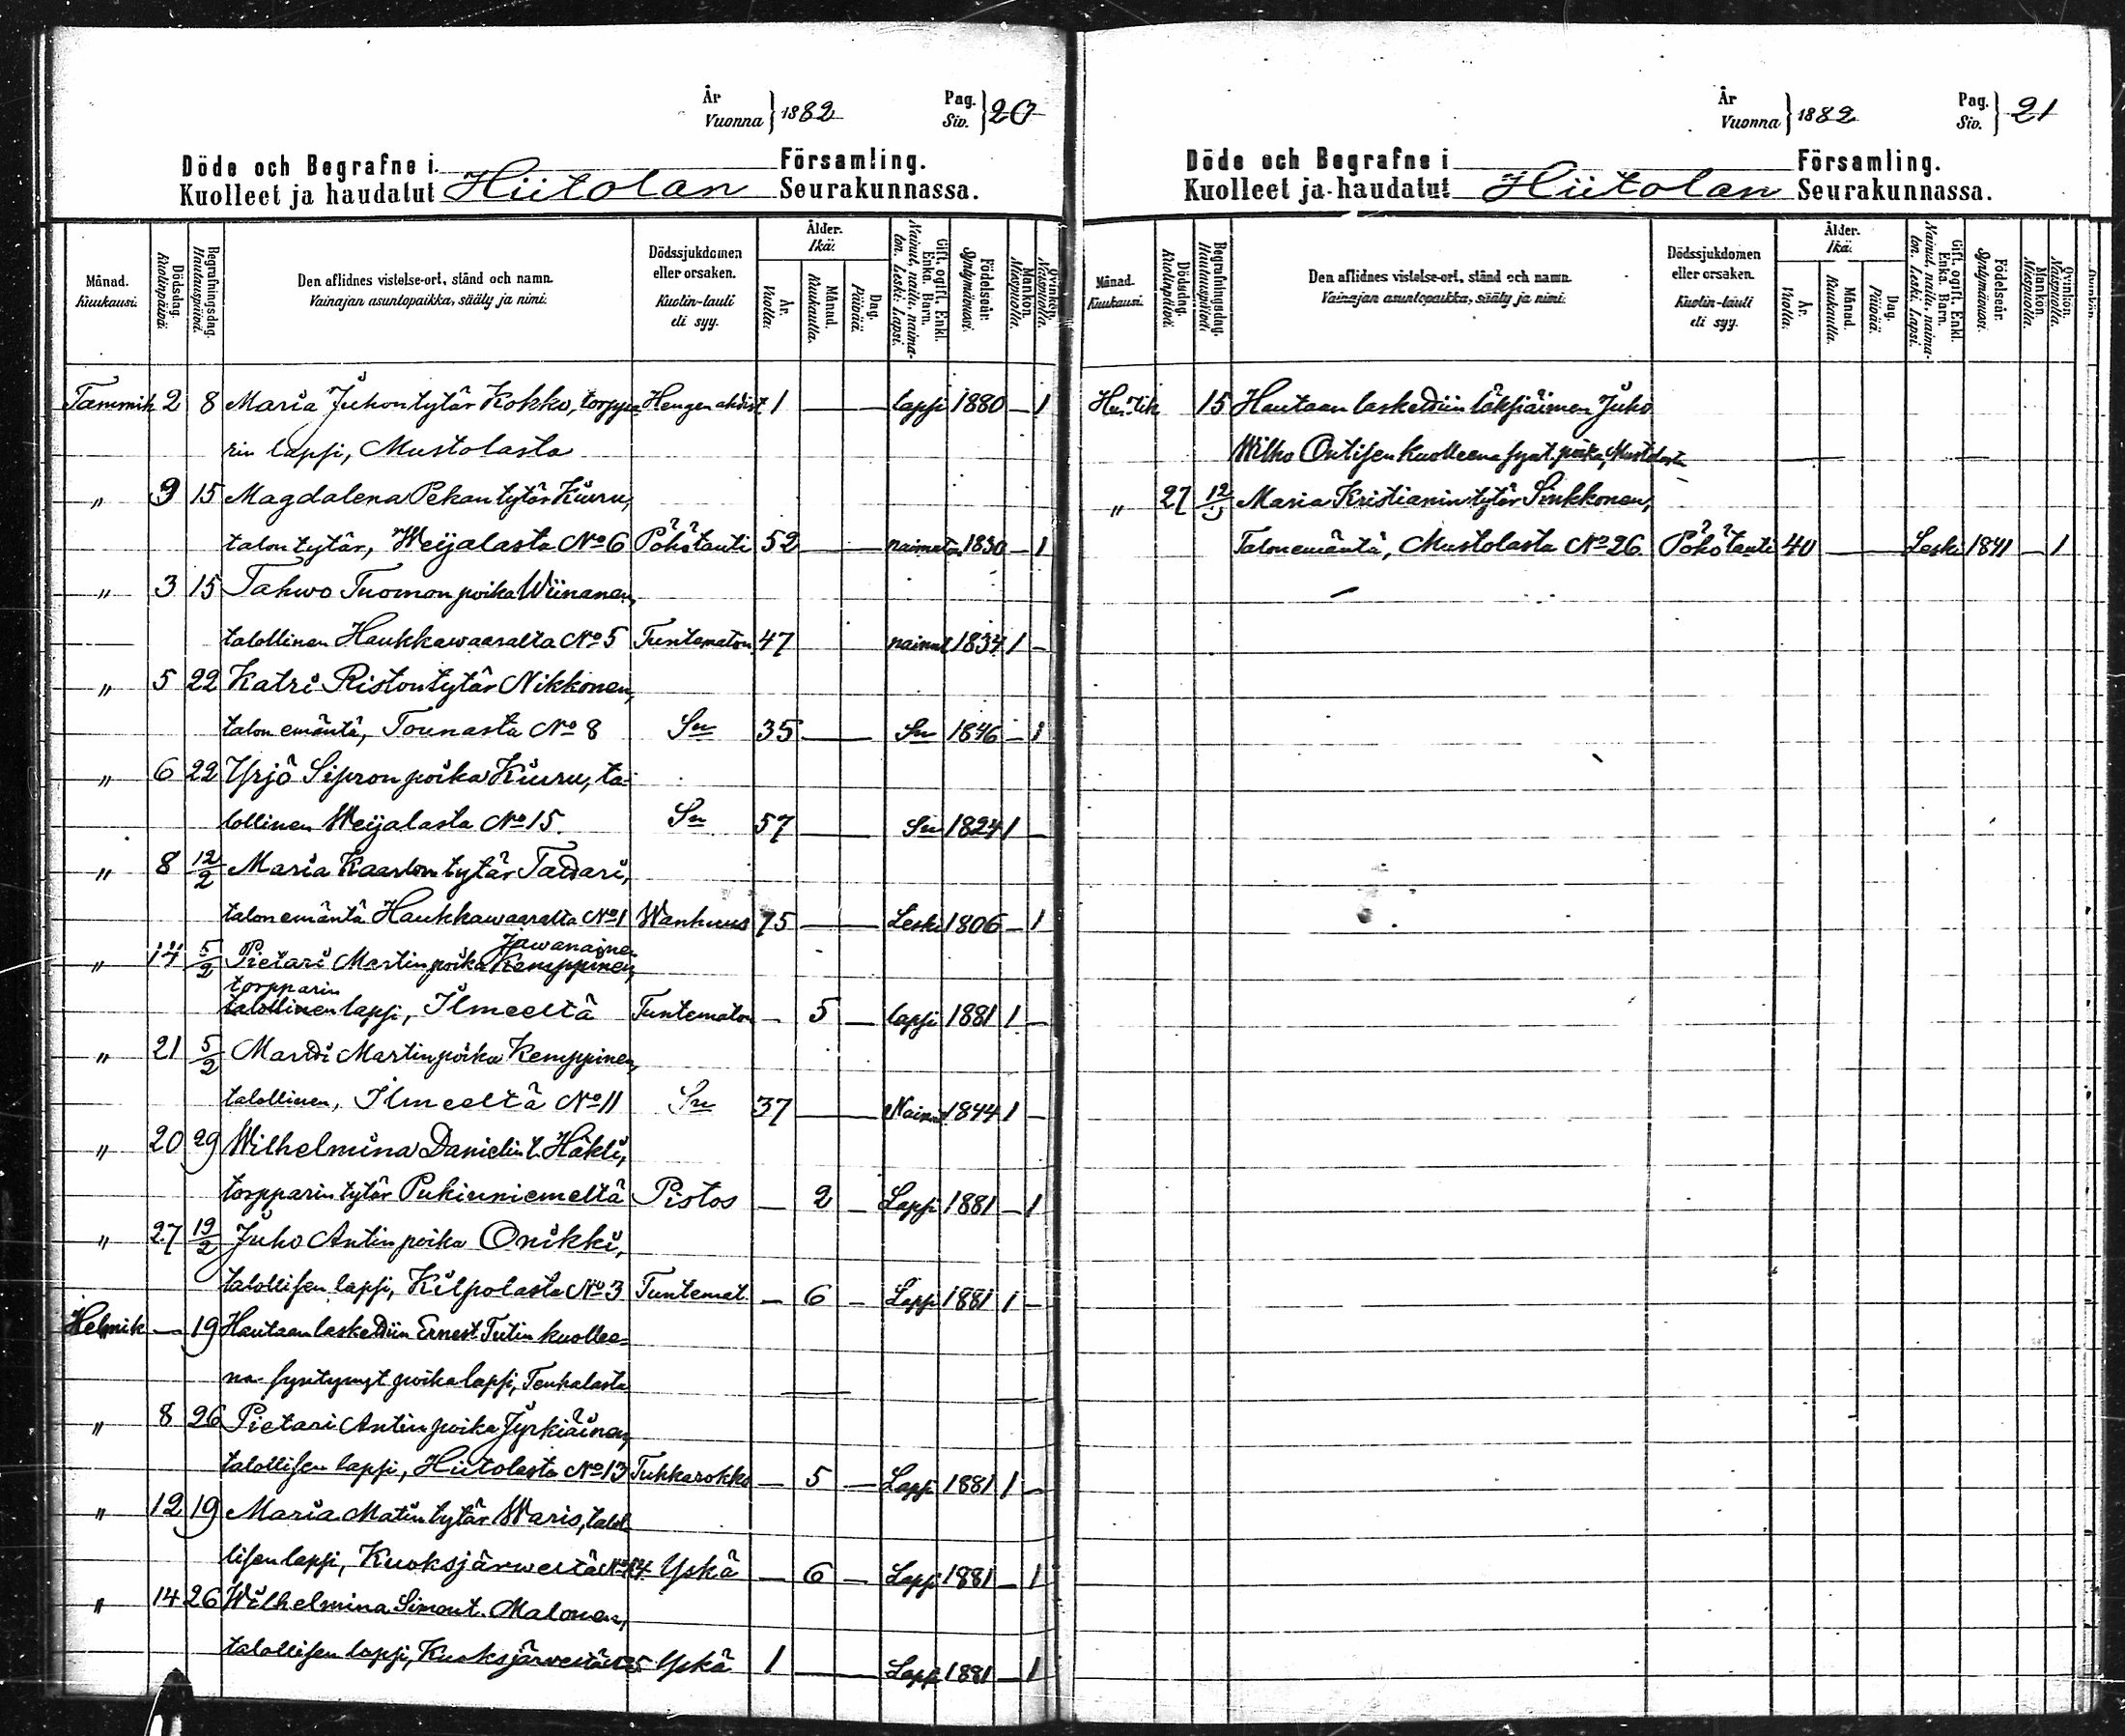 År
Vuonna } 1882
Pag.
Siv. } 20
Döde och Begrafne i Församling.
Kuolleet ja haudatut Hiitolan Seurakunnassa.
Månad. Kuukausi. Dödsdag. Kuolinpäivä. Begrafningsdag. Hautauspäivä. Den aflidnes vistelse-ort, stånd och namn. Vainajan asuntopaikka, sääty ja nimi. Dödssjukdomen eller orsaken. Kuolin-tauti eli syy. Ålder. Ikä. År. Vuotta. Månad. Kuukautta. Dag. Päivää. Gift, ogift, Enkl. Enka. Barn. Nainut, naitu, naimaton. Leski. Lapsi. Födelseår. Syntymävuosi. Mankön. Miespuolta. Qvinkön. Naispuolta.
Tammik 2 8 Maria Juhontytär Kokko, torppa- Hengenahdist 1 — lapsi 1880 — 1
rin lapsi, Mustolasta
" 9 15 Magdalena Pekantytär Kiuru,
talon tytär, Weijalasta No 6 Pöhötauti 52 — naimaton 1830 — 1
" 3 15 Tahwo Tuomonpoika Wiinanen,
talollinen Haukkawaaralta No 5 Tuntematon 47 nainut 1834 1 —
" 5 22 Katri Ristontytär Nikkonen,
talon emäntä, Tounasta No 8 Sn 35 — Sn 1846 — 1
" 6 22 Yrjö Sipronpoika Kiuru, ta-
lollinen Weijalasta No 15. Sn 57 — Sn 1824 1 —
" 8 12/2 Maria Kaarlontytär Taddari,
talonemäntä Haukkawaaralta No 1 Wanhuus 75 — Leski 1806 — 1
Jawanainen
" 14 5/2 Pietari Martinpoika Kemppinen,
torpparin
talollinen lapsi, Ilmeeltä Tuntematon — 5 — lapsi 1881 1 —
" 21 5/2 Mardi Martinpoika Kemppinen,
talollinen, Ilmeeltä No 11 Sn 37 — Nainut 1844 1 —
" 20 29 Wilhelmina Danielin t. Häkli,
torpparin tytär Pukinniemeltä Pistos — 2 — Lapsi 1881 — 1
" 27 19/2 Juho Antinpoika Onikki,
talollisen lapsi, Kilpolasta No 3 Tuntemat. — 6 — Lapsi 1881 1 —
Helmik — 19 Hautaan laskediin Ernest Tutin kuollee-
na syntynyt poikalapsi, Tenkalasta —
" 8 26 Pietari Antinpoika Jyrkiäinen,
talollisen lapsi, Hiitolasta No 13 Tuhkarokko — 5 — Lapsi 1881 1 —
" 12 19 Maria Matintytär Waris, talol-
lisen lapsi, Kuoksjärweltä No 14 Yskä — 6 — Lapsi 1881 — 1
" 14 26 Wilhelmina Simont. Malonen,
talollisen lapsi, Kuoksjärweltä Yskä 1 — Lapsi 1881 — 1
År
Vuonna } 1882
Pag.
Siv. } 21
Döde och Begrafne i Församling.
Kuolleet ja haudatut Hiitolan Seurakunnassa.
Månad. Kuukausi. Dödsdag. Kuolinpäivä. Begrafningsdag. Hautauspäivä. Den aflidnes vistelse-ort, stånd och namn. Vainajan asuntopaikka, sääty ja nimi. Dödssjukdomen eller orsaken. Kuolin-tauti eli syy. Ålder. Ikä. År. Vuotta. Månad. Kuukautta. Dag. Päivää. Gift, ogift, Enkl. Enka. Barn. Nainut, naitu, naimaton. Leski. Lapsi. Födelseår. Syntymävuosi. Mankön. Miespuolta. Qvinkön. Naispuolta.
15 Hautaan laskediin Juho
Wilho Ontisen kuolleena synt. poika, Mustolasta —
" 27 12 Maria Kristianintytär Sinkkonen,
Talonemäntä, Mustolasta No 26 Pöhötauti 40 — Leski 1841 — 1